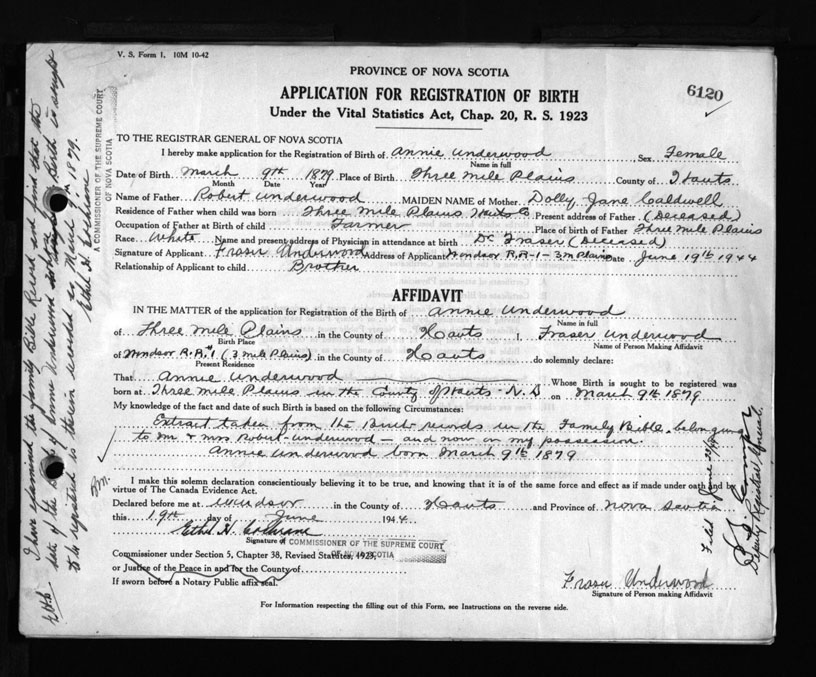 V. S. Form 1. 10M 10-42
PROVINCE OF NOVA SCOTIA
6120
APPLICATION FOR REGISTRATION OF BIRTH
Under the Vital Statistics Act, Chap. 20, R. S. 1923
TO THE REGISTRAR GENERAL OF NOVA SCOTIA
I hereby make application for the Registration of Birth of Annie Underwood Sex Female
Name in full
Date of Birth March 9th 1879 Place of Birth Three Mile Plains County of Hants
Month Date Year
Name of Father Robert Underwood MAIDEN NAME of Mother Dolly Jane Caldwell
Residence of Father when child was born Three Mile Plains Hants Co Present address of Father (Deceased)
Occupation of Father at Birth of child Farmer Place of birth of Father Three Mile Plains
Race White Name and present address of Physician in attendance at birth Dr Fraser (Deceased)
Signature of Applicant Fraser Underwood Address of Applicant Windsor R.R-1-3 M Plains Date June 19th 1944
Relationship of Applicant to child Brother
AFFIDAVIT
IN THE MATTER of the application for Registration of the Birth of Annie Underwood
Name in full
of Three Mile Plains in the County of Hants I, Fraser Underwood
Birth Place Name of Person Making Affidavit
of Windsor R.R.#1 (3 Mile Plains) in the County of Hants do solemnly declare:
Present Residence
That Annie Underwood Whose Birth is sought to be registered was
born at Three Mile Plains in the County of Hants - N.S on March 9th 1879
My knowledge of the fact and date of such Birth is based on the following Circumstances:
Extract taken from the Birth records in the Family Bible, belonging
to Mr & Mrs Robert Underwood — and now in my possession.
Annie Underwood born March 9th 1879
I make this solemn declaration conscientiously believing it to be true, and knowing that it is of the same force and effect as if made under oath and by
virtue of The Canada Evidence Act.
Declared before me at Windsor in the County of Hants and Province of Nova Scotia
this 19th day of June 1944
Ethel H. Cochrane
Signature of A COMMISSIONER OF THE SUPREME COURT
OF NOVA SCOTIA
Commissioner under Section 5, Chapter 38, Revised Statutes, 1923,
or Justice of the Peace in and for the County of
If sworn before a Notary Public affix seal.
Fraser Underwood
Signature of Person making Affidavit
For Information respecting the filling out of this Form, see Instructions on the reverse side.
I have examined the family Bible Record and find that the
date of the Birth of Annie Underwood whose Birth is sought
to be registered is therein recorded as March 9th 1879.
Ethel H. Cochrane
A COMMISSIONER OF THE SUPREME COURT
OF NOVA SCOTIA
EHC
Filed June
Deputy Registrar General